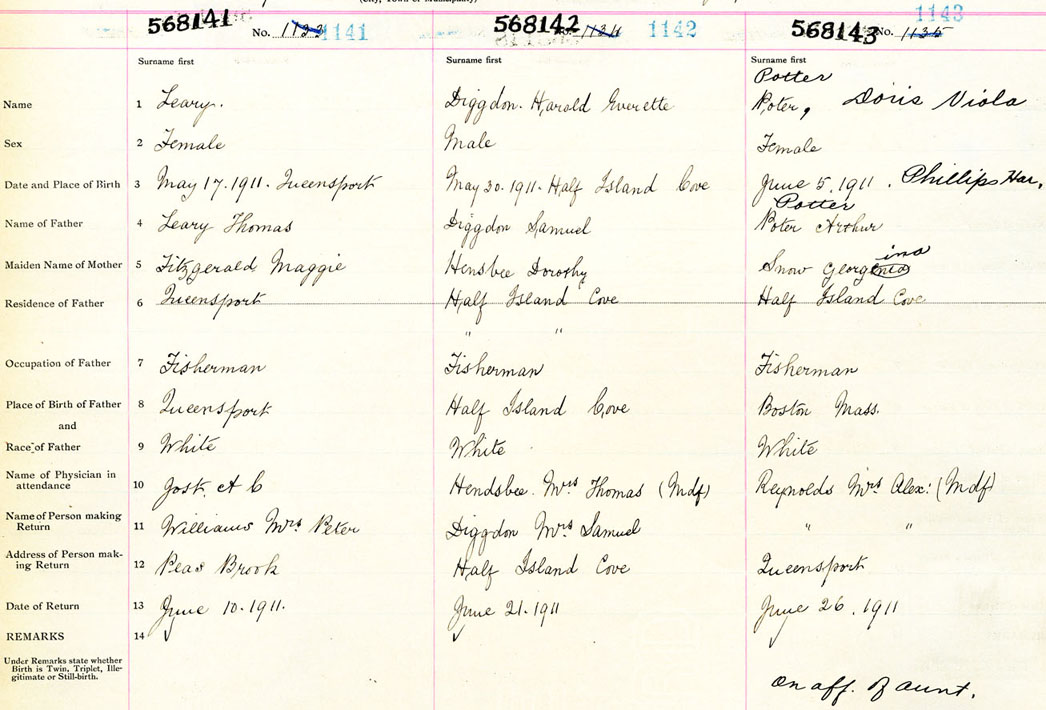 (City, Town or Municipality)
568141 No. 1133 1141
568142 No. 1134 1142
568143 No. 1135 1143
Surname first Surname first Surname first
Potter
Name 1 Leary. Diggdon. Harald Everette Poter, Doris Viola
Sex 2 Female Male Female
Date and Place of Birth 3 May 17. 1911. Queensport May 30. 1911. Half Island Cove June 5. 1911. Phillips Har.
Potter
Name of Father 4 Leary Thomas Diggdon Samuel Poter Arthur
ina
Maiden Name of Mother 5 Fitzgerald Maggie Hensbee Dorothy Snow Georgenia
Residence of Father 6 Queensport Half Island Cove Half Island Cove
" "
Occupation of Father 7 Fisherman Fisherman Fisherman
Place of Birth of Father 8 Queensport Half Island Cove Boston Mass.
and
Race of Father 9 White White White
Name of Physician in
attendance 10 Jost. A C Hendsbee. Mrs Thomas (Mdf) Reynolds Mrs Alex. (Mdf)
Name of Person making
Return 11 Williams Mrs Peter Diggdon Mrs. Samuel " "
Address of Person mak-
ing Return 12 Peas Brook Half Island Cove Queensport
Date of Return 13 June 10. 1911. June 21. 1911 June 26. 1911
REMARKS 14
Under Remarks state whether
Birth is Twin, Triplet, Ille-
gitimate or Still-birth.
On aff. of aunt.